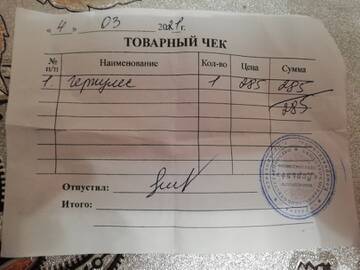 « 4 » 03 2021 г.
ТОВАРНЫЙ ЧЕК
№ п/п Наименование Кол-во Цена Сумма
1. Геркулес 1 285 285
285
Отпустил:
Итого: